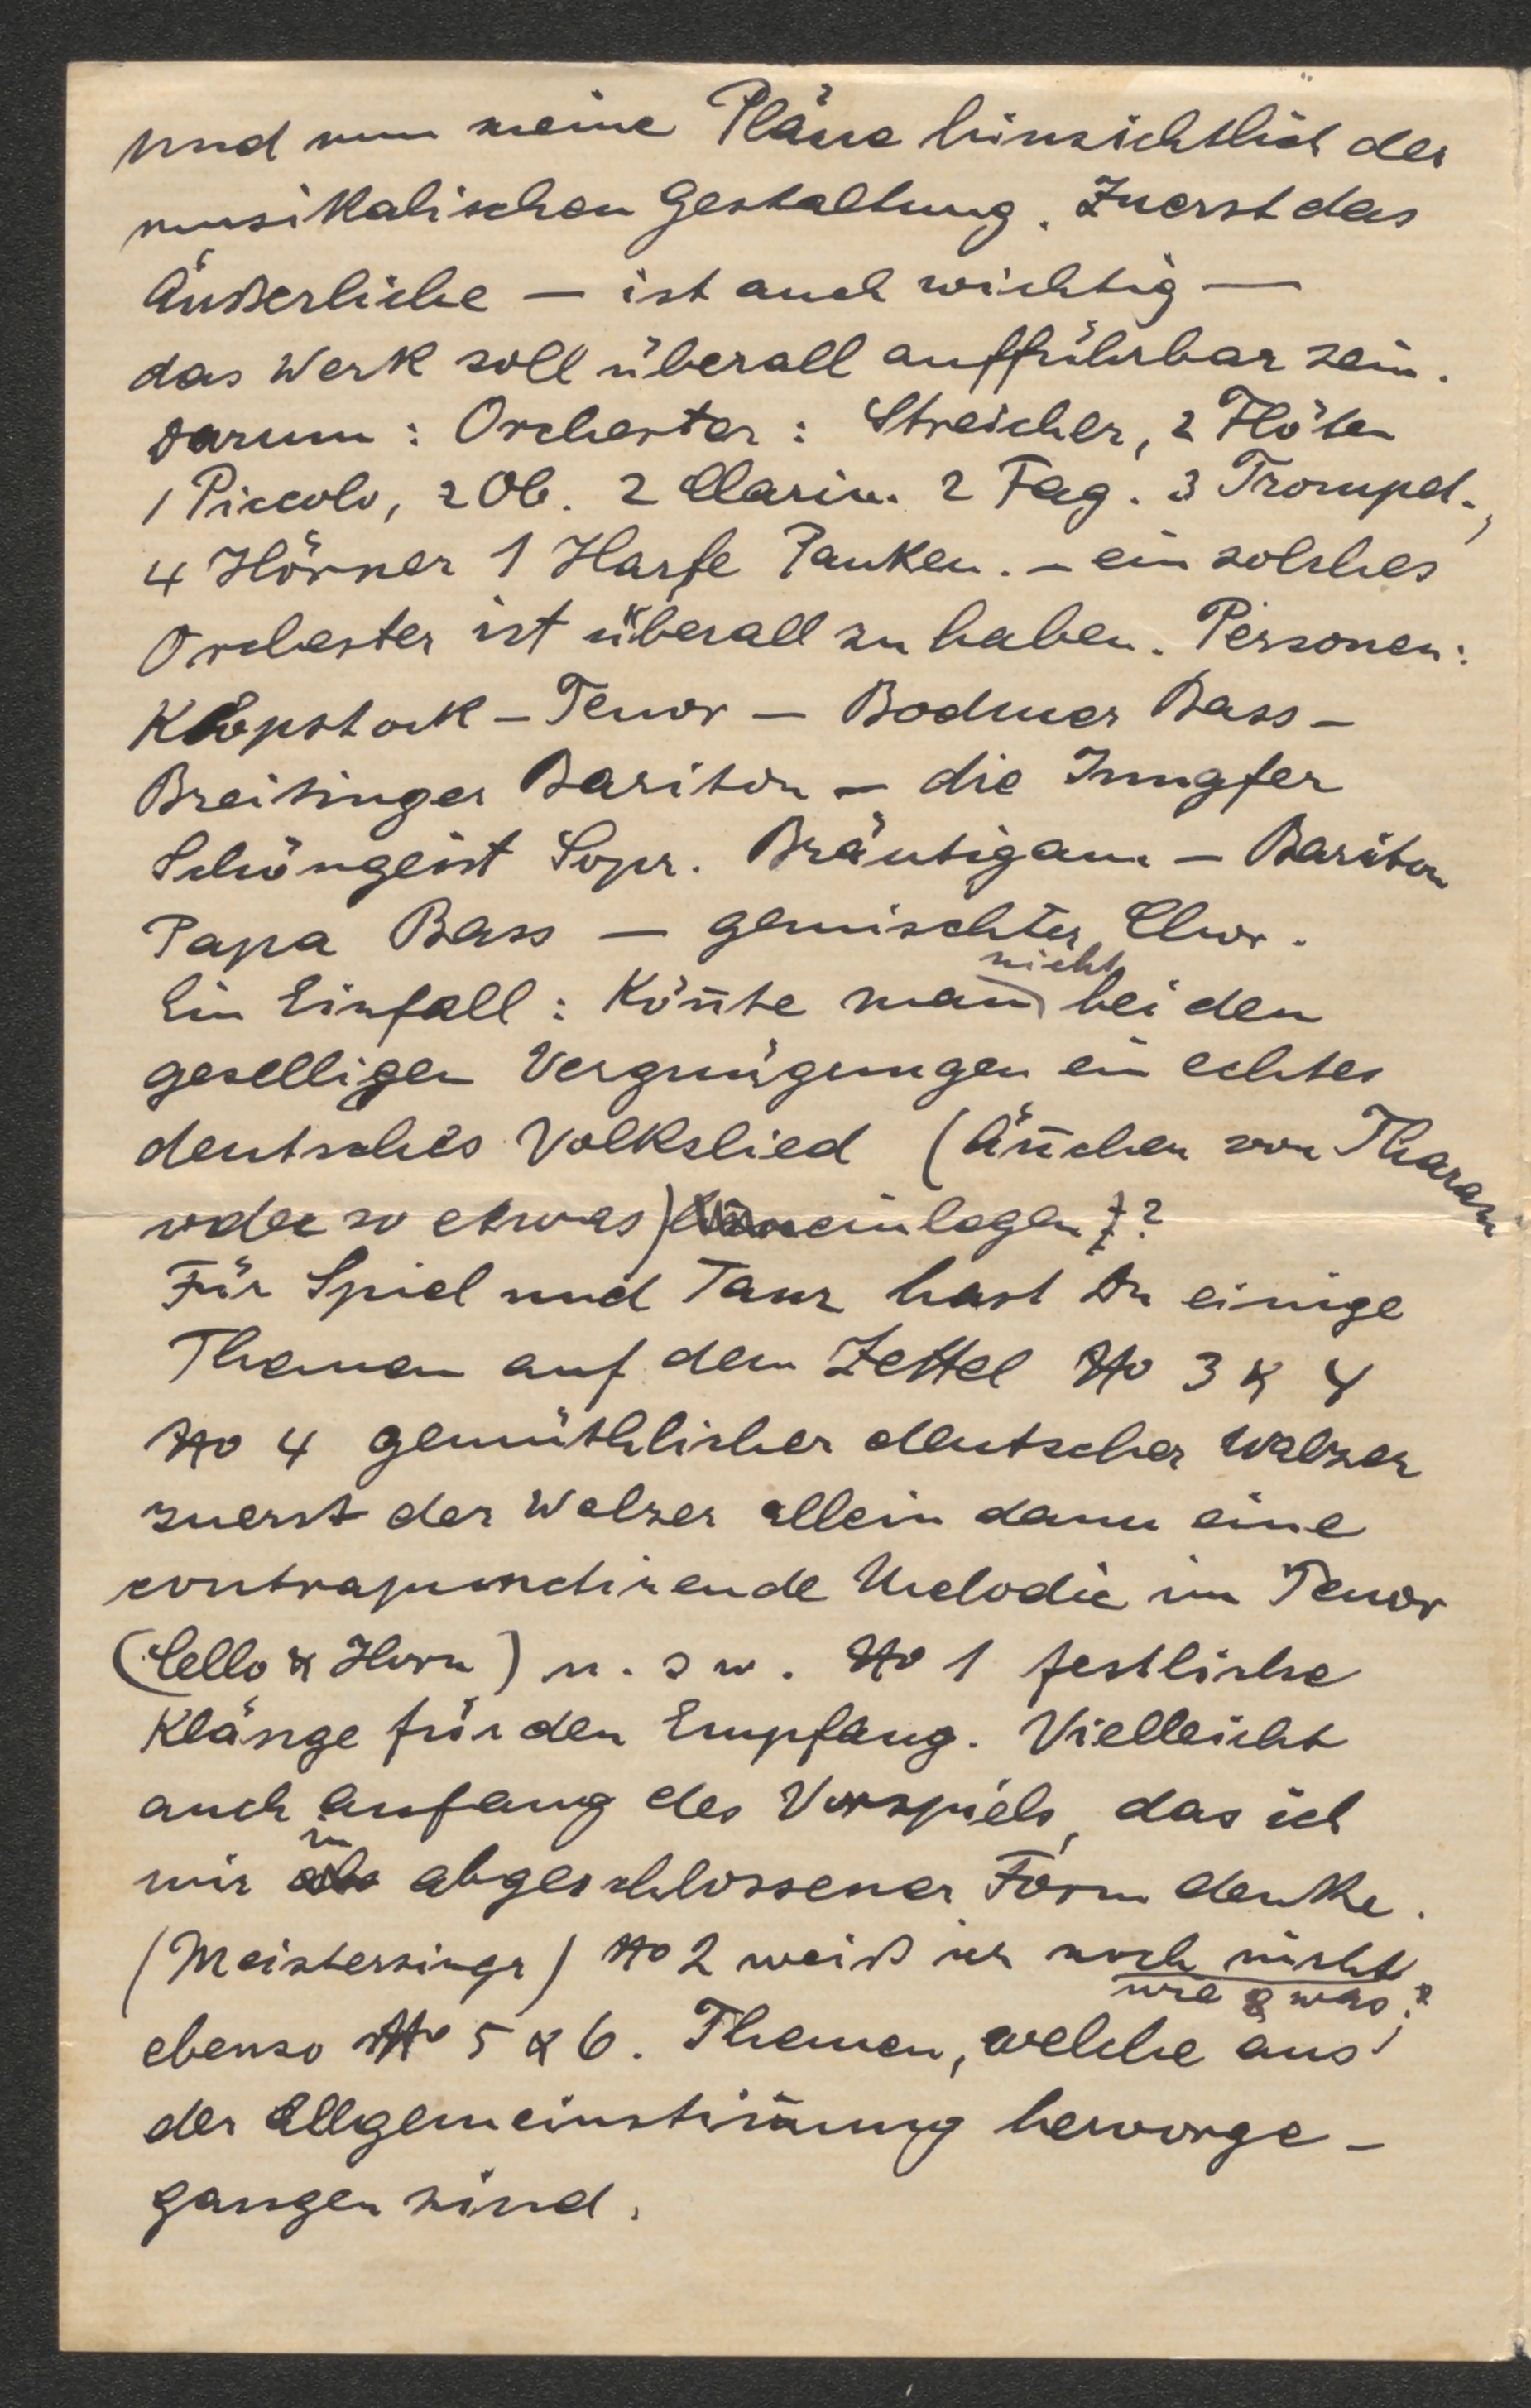 und nun meine Pläne hinsichtlich der
musikalischen Gestaltung. Zuerst das
Äußerliche — ist auch wichtig —
das Werk soll überall aufführbar sein.
Darum: Orchester: Streicher, 2 Flöten
1 Piccolo, 2 Ob. 2 Clarin. 2 Fag. 3 Trompet.,
4 Hörner 1 Harfe Pauken. – ein solches
Orchester ist überall zu haben. Personen:
Klopstock – Tenor – Bodmer Bass –
Breitinger Bariton – die Jungfer
Schöngeist Sopr. Bräutigam – Bariton
Papa Bass — gemischter Chor.
Ein Einfall: Kön̄te man nicht bei den
geselligen Vergnügungen ein echtes
deutsches Volkslied (Än̄chen von Tharau
oder so etwas) einlegen?
Für Spiel und Tanz hast Du einige
Themen auf dem Zettel No 3 & 4
No 4 gemüthlicher deutscher Walzer
zuerst der Walzer allein dann eine
contrapunctirende Melodie im Tenor
(Cello & Horn) u. s w. No 1 festliche
Klänge für den Empfang. Vielleicht
auch anfang des Vorspiels, das ich
mir in abgeschlossener Form denke.
(Meistersinger) No 2 weiß ich noch nicht
wie & was?
ebenso No 5 & 6. Themen, welche aus
der Allgemeinstim̄ung hervorge-
gangen sind.